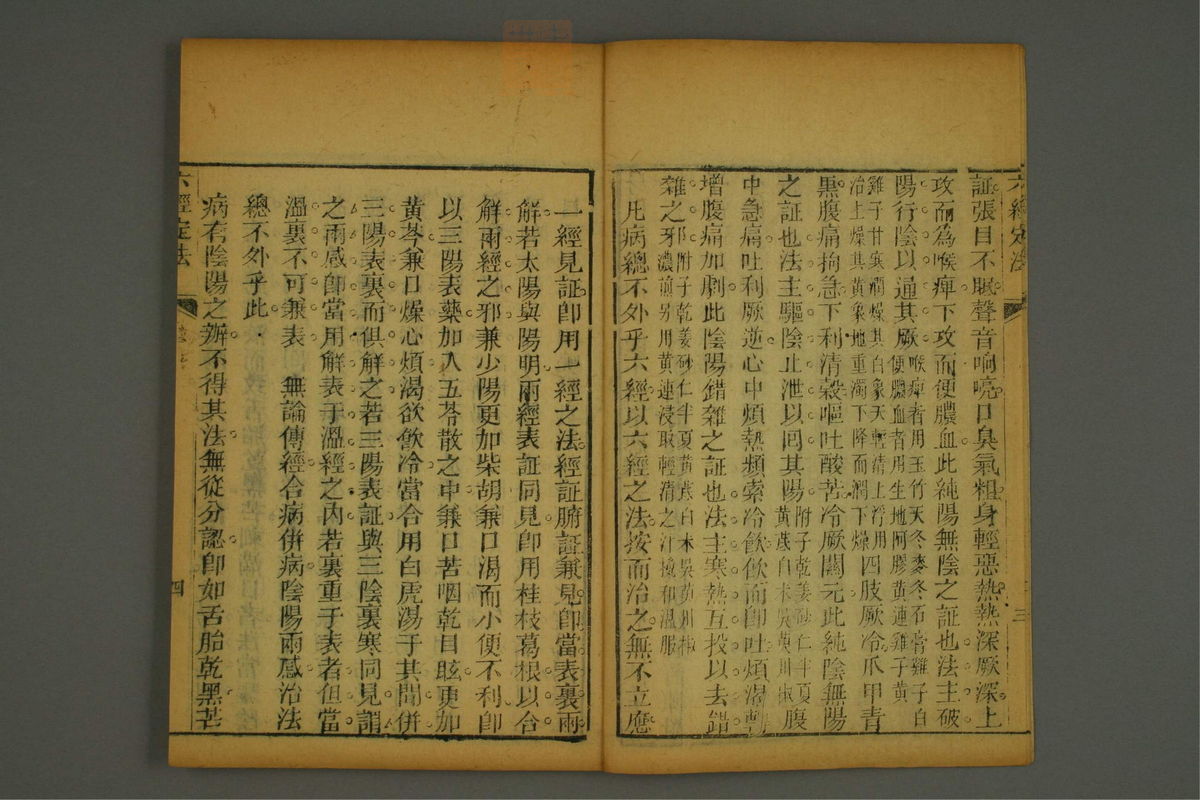 六經定法
三
証張目不眠聲音响喨口臭氣粗身輕惡熱熱深厥深上
攻而為喉痺下攻而便膿血此純陽無陰之証也法主破
陽行陰以通其厥喉痺者用玉竹天冬麥冬石膏雞子白
便膿血者用生地阿膠黃連雞子黃
雞子甘寒潤燥其白象天輕清上浮用
治上燥其黃象地重濁下降而潤下燥四肢厥冷爪甲青
黑腹痛拘急下利清穀嘔吐酸苦冷厥關元此純陰無陽
之証也法主驅陰止泄以回其陽附子乾姜砂仁半夏
黃蓍白朮吳茱川椒腹
中急痛吐利厥逆心中煩熱頻索冷飲飲而即吐煩渴轉
增腹痛加劇此陰陽錯雜之証也法主寒熱互投以去錯
雜之邪附子乾姜砂仁半夏黃蓍白朮吳茱川椒
濃煎另用黃連浸取輕清之汁攙和溫服
凡病總不外乎六經以六經之法按而治之無不立應
一經見証即用一經之法經証腑証兼見即當表裏兩
解若太陽與陽明兩經表証同見即用桂枝葛根以合
解兩經之邪兼少陽更加柴胡兼口渴而小便不利即
以三陽表藥加入五苓散之中兼口苦咽乾目眩更加
黃芩兼口燥心煩渴欲飲冷當合用白虎湯于其間併
三陽表裏而俱解之若三陽表証與三陰裏寒同見謂
之兩感即當用解表于溫經之內若裏重于表者但當
溫裏不可兼表　無論傳經合病併病陰陽兩感治法
總不外乎此
病有陰陽之辨不得其法無從分認即如舌胎乾黑芒
六經定法
四